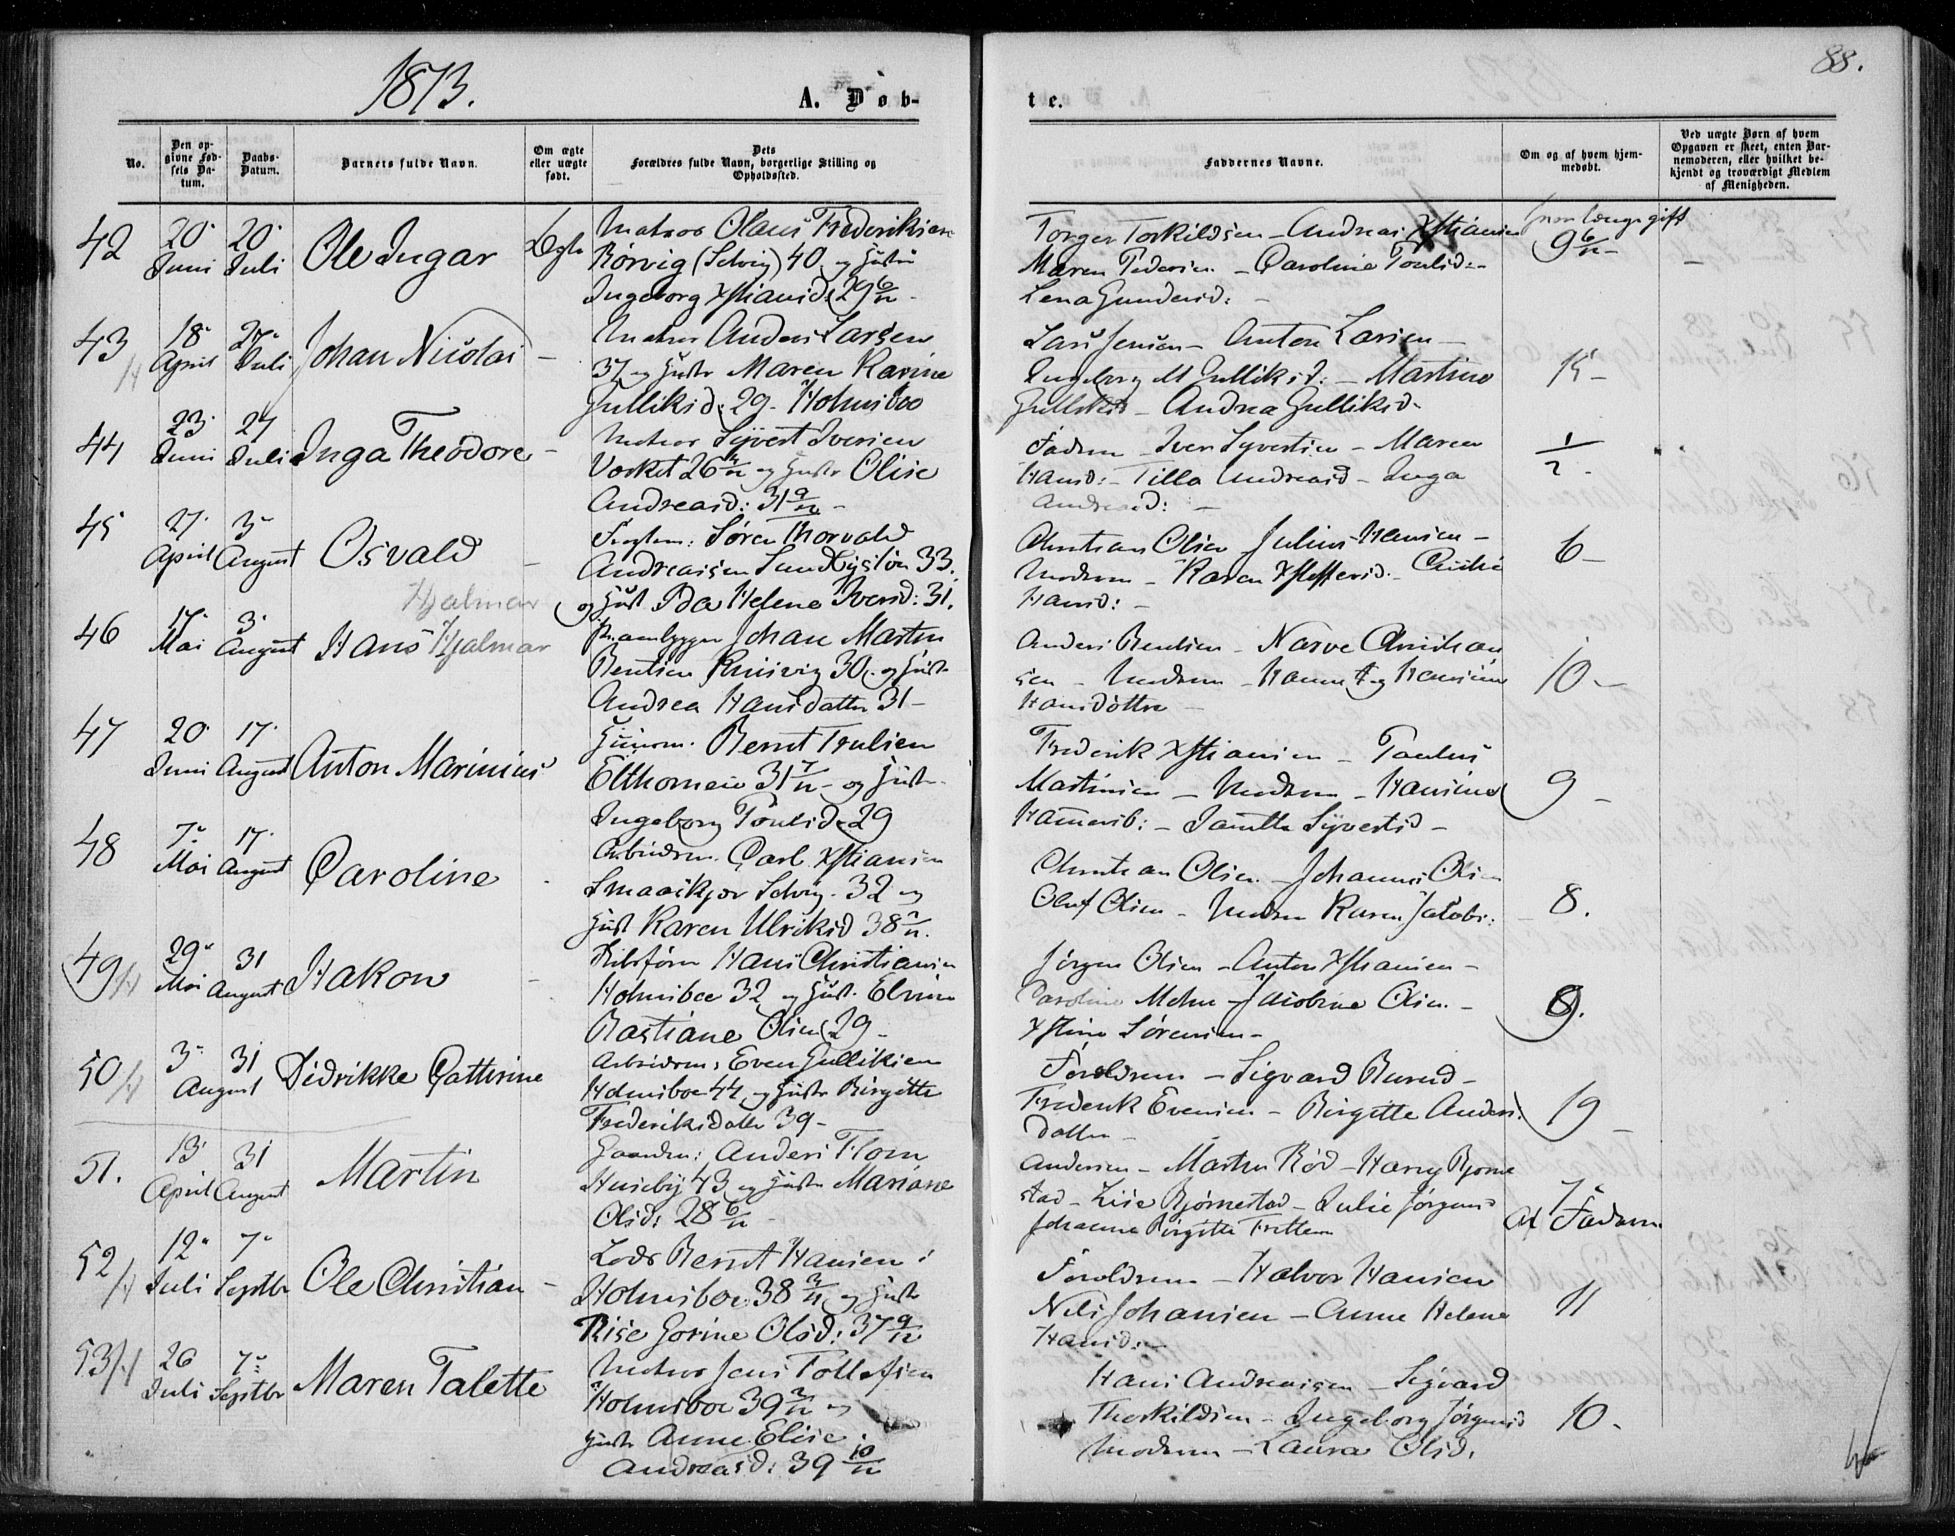 1873.
88.
A. Døb-
te.
No.
Den op-
givne Fød-
sels Da-
tum.
Daabs-
Datum.
Barnets fulde Navn.
Om ægte
eller uægte
født.
Dets
Forældres fulde Navn, borgerlige Stilling og
Opholdssted.
Faddernes Navne.
Om og af hvem hjem-
medøbt.
Ved uægte Børn af hvem
Opgaven er skeet, enten Bar-
nemoderen, eller hvilket be-
kjendt og troværdigt Medlem
af Menigheden.
42
20.
Juni
20.
Juli
Ole Ingar
Matros Olaus Frederiksen
Rørvig (Selvig) 40 og Hustru
Ingeborg Xstiansd: 29 6/12
Torger Torkildsen - Andreas Xstiansen
Maren Pedersen - Caroline
Lena Gundersd:
hvor længe gift
9 6/12 -
43
18
April
27
Juli
Johan Nicolai -
Matros Anders Larsen
37 og Hustr Maren Karine
Gulliksd: 29 - Holmsboe
Lars Jensen - Anton Larsen -
Ingeborg M Gulliksd: - Martine
Gulliksd - Andrea Gulliksd -
15 -
44
23
Juni
27
Juli
Inga Theodore -
Matros Syvert Iversen
26 og Hustr Olise
Andreasd: 31 9/12 -
Faderen - Iver Syvertsen - Maren
Hansd: - Tilla Andreasd - Inga
Andreasd: -
1/2 -
45
27
April
3
August
Osvald -
Hjalmar
Søren Thorvald
Andreassen 33.
og Hust Ida Helene Iversd: 31.
Christian Olsen Julius Hansen -
Moderen - Karen
Hansd: -
6 -
46
17
Mai
3
August
Hans Hjalmar
Johan Martin
Bentsen 30. og Hustr
Andrea Hansdatter 31 -
Anders Bentsen - Narve Christian
sen - Moderen - Hanna og Hansine
Hansdøttre -
10 -
47
20
Juni
17
August
Anton Marinius
Husm. Bernt Trulsen
31 7/12 - og Hustr
Ingeborg 29
Frederik Xstiansen - Paulus
Martinsen - Moderen - Hansine
9 -
48
7
Mai
17
August
Caroline
Arbeidsm. Carl Xstiansen
Selvig - 32 og
Hust Karen Ulriksd 38
Christian Olsen - Johannes Olsen
Oluf Olsen - Karen Jakobs:
8.
49
29
Mai
31
August
Hakon -
Skibsfører Hans Christiansen
Holmsboe 32 og Hust. Elvine
Bastiane Olsen 29 -
Jørgen Olsen - Anton Xstiansen -
Caroline Jacobine Olsen -
Xstine Sørensen -
9.
50
3
August
31
Didrikke Catterine
Arbeidsm: Even Gulliksen
Holmsboe 44, og Hustr Birgitte
Frederiksdatter 39 -
Forældrene - Sigvard
Frederik Evensen - Birgitte Anders:
datter -
19 -
51.
13
April
31
August
Martin
Gaardm: Anders Flom
Huseby 43, og Hustr Mariane
Olsd: 28 6/12 -
Andersen - Martin Rød - Harry Bjørne
stad - Lise Bjørnestad - Julie Jørgens
Johanne Birgitte
7
Af Faderen
52
12
Juli
7
Septbr
Ole Christian -
Lods Bernt Hansen i
Holmsboe 38 3/12, og Hustr
Rise Gorine Olsd: 37 9/12
Forældrene - Halvor Hansen
Nels Johansen - Anne Helene
Hansd: -
11
53
26
Juli
7
Septbr
Maren Talette
Matros Jens Tollefsen
Holmsboe 39 3/12 og
Hustr Anne Elise
Andreasd: 39 10/12
Hans Andreassen - Sigvard
Thorkildsen - Ingeborg Jørgensd
Moderen - Laura Olsd.
10.